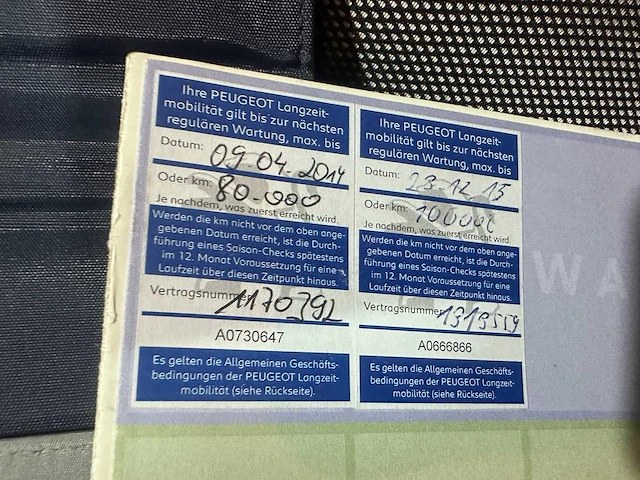 Ihre PEUGEOT Langzeit-
mobilität gilt bis zur nächsten
regulären Wartung, max. bis
Datum: 09-04.2014
Oder km: 80.000
Je nachdem, was zuerst erreicht wird.
Werden die km nicht vor dem oben ange-
gebenen Datum erreicht, ist die Durch-
führung eines Saison-Checks spätestens
im 12. Monat Voraussetzung für eine
Laufzeit über diesen Zeitpunkt hinaus.
Vertragsnummer 1170792
A0730647
Es gelten die Allgemeinen Geschäfts-
bedingungen der PEUGEOT Langzeit-
mobilität (siehe Rückseite).
Ihre PEUGEOT Langzeit-
mobilität gilt bis zur nächsten
regulären Wartung, max. bis
Datum: 23 12 15
Oder km: 100000
Je nachdem, was zuerst erreicht wird.
Werden die km nicht vor dem oben ange-
gebenen Datum erreicht, ist die Durch-
führung eines Saison-Checks spätestens
im 12. Monat Voraussetzung für eine
Laufzeit über diesen Zeitpunkt hinaus.
Vertragsnummer 1319559
A0666866
Es gelten die Allgemeinen Geschäfts-
bedingungen der PEUGEOT Langzeit-
mobilität (siehe Rückseite).
WA